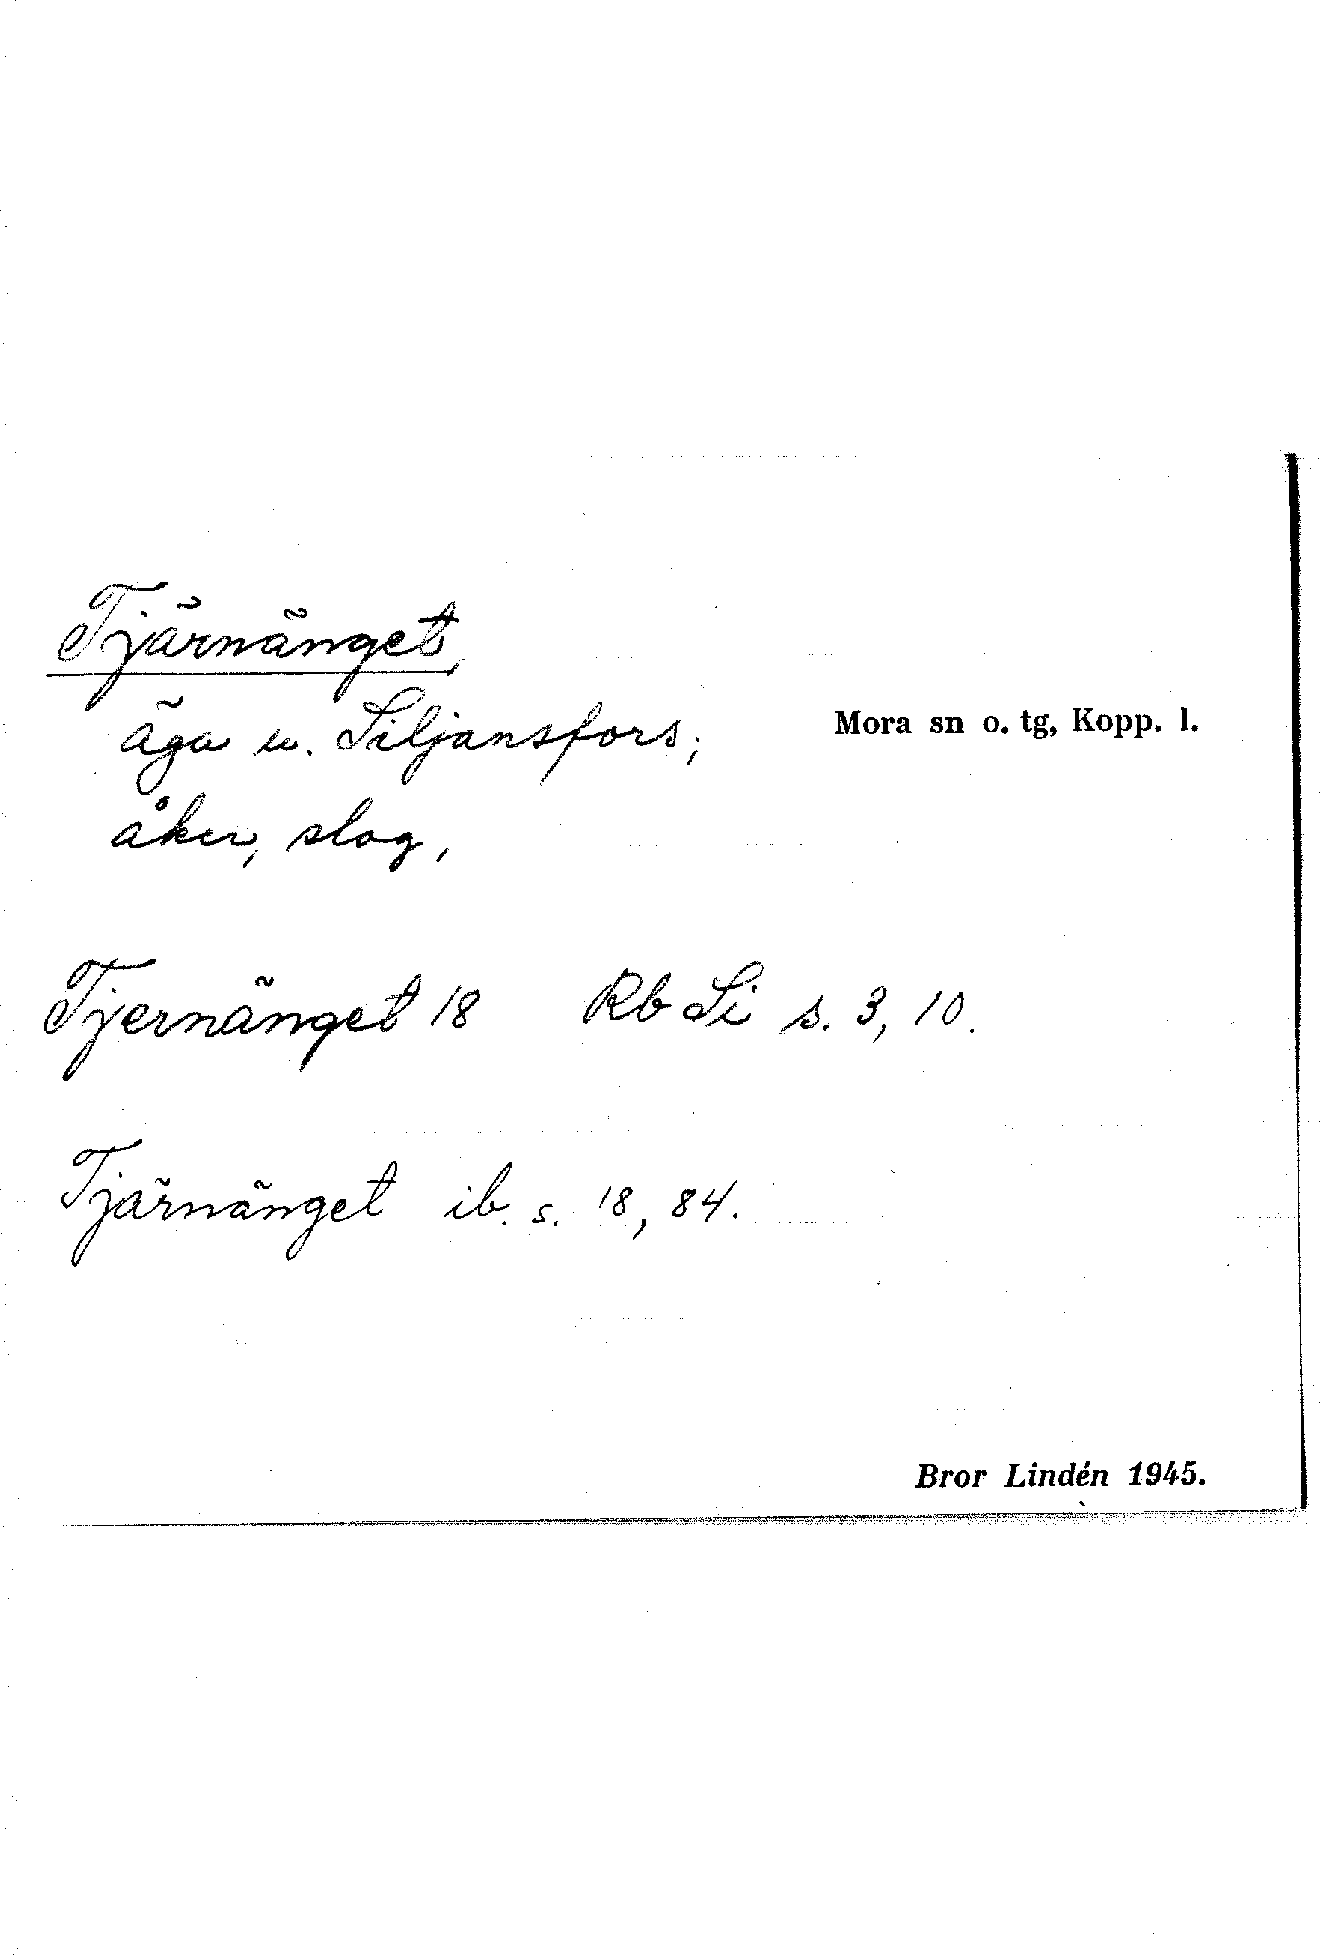 Tjärnänget,
äga u. Siljansfors;
Mora sn o. tg, Kopp. l.
åker, slog,
Tjernänget 18 Rb Si s. 3, 10.
Tjärnänget ib. s. 18, 84.
Bror Lindén 1945.